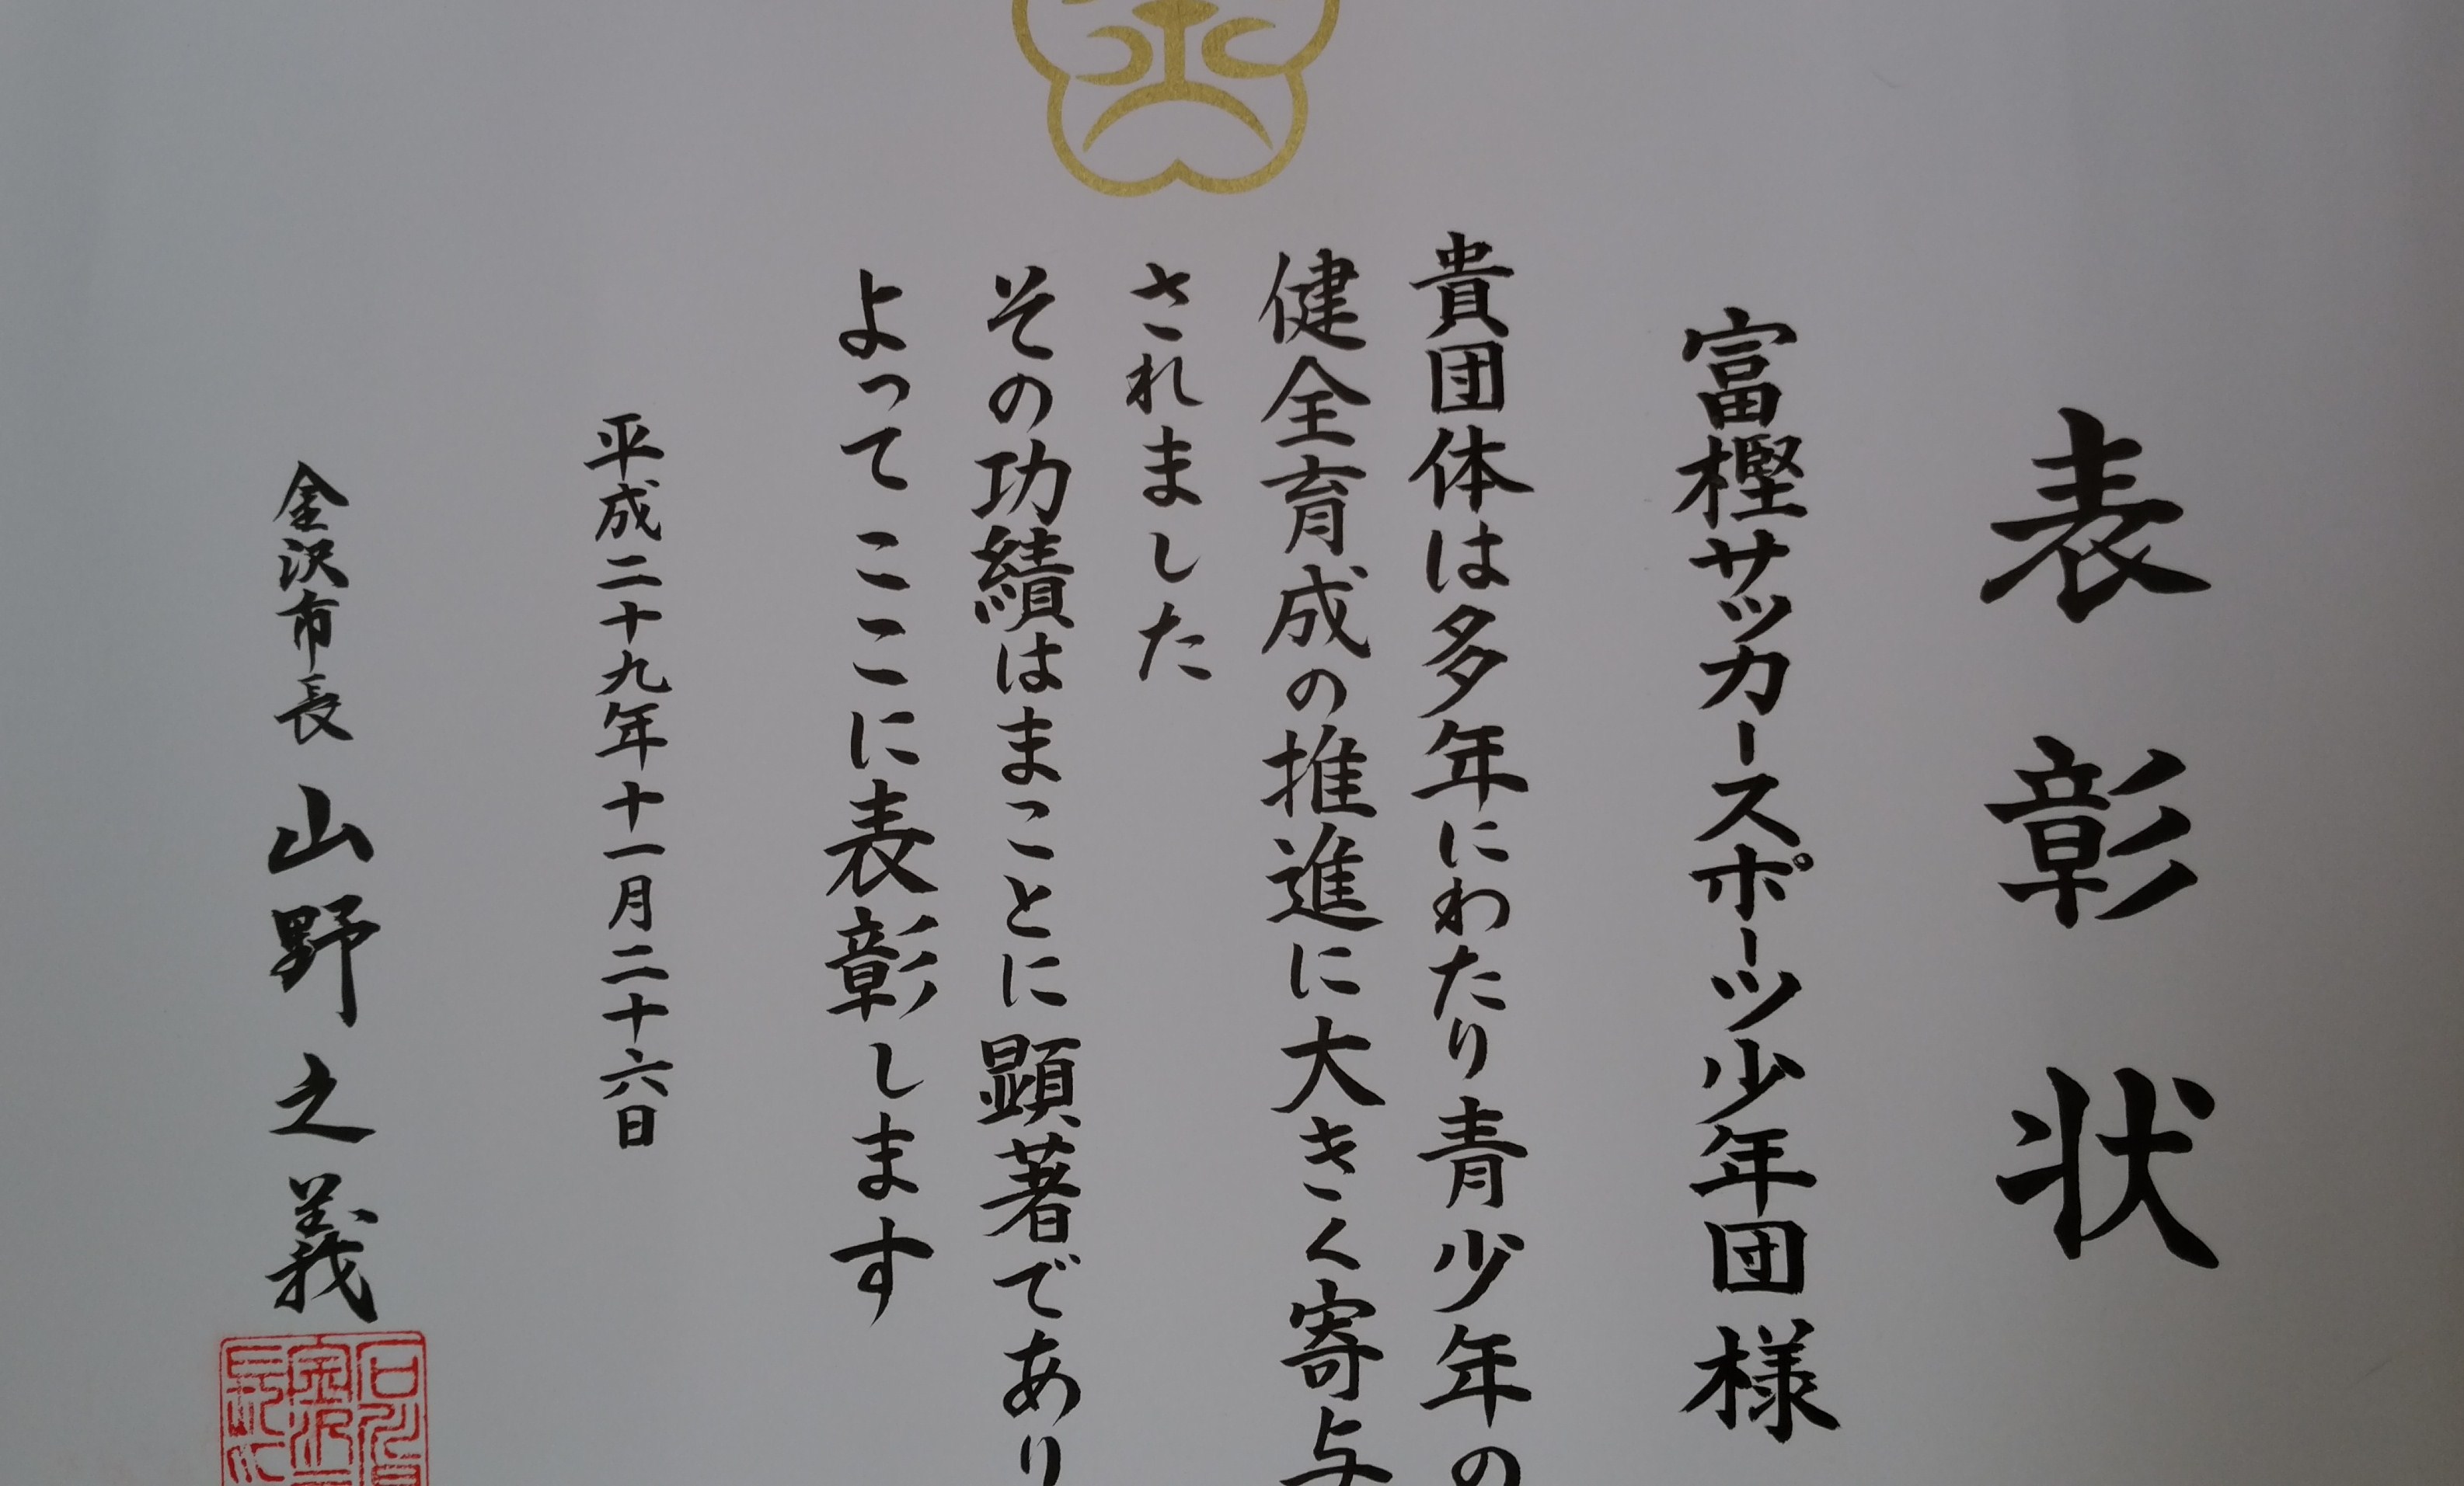 表彰状
富樫サッカースポーツ少年団様
貴団体は多年にわたり青少年の
健全育成の推進に大きく寄与
されました
その功績はまことに顕著であり
よってここに表彰します
平成二十九年十一月二十六日
金沢市長 山野之義